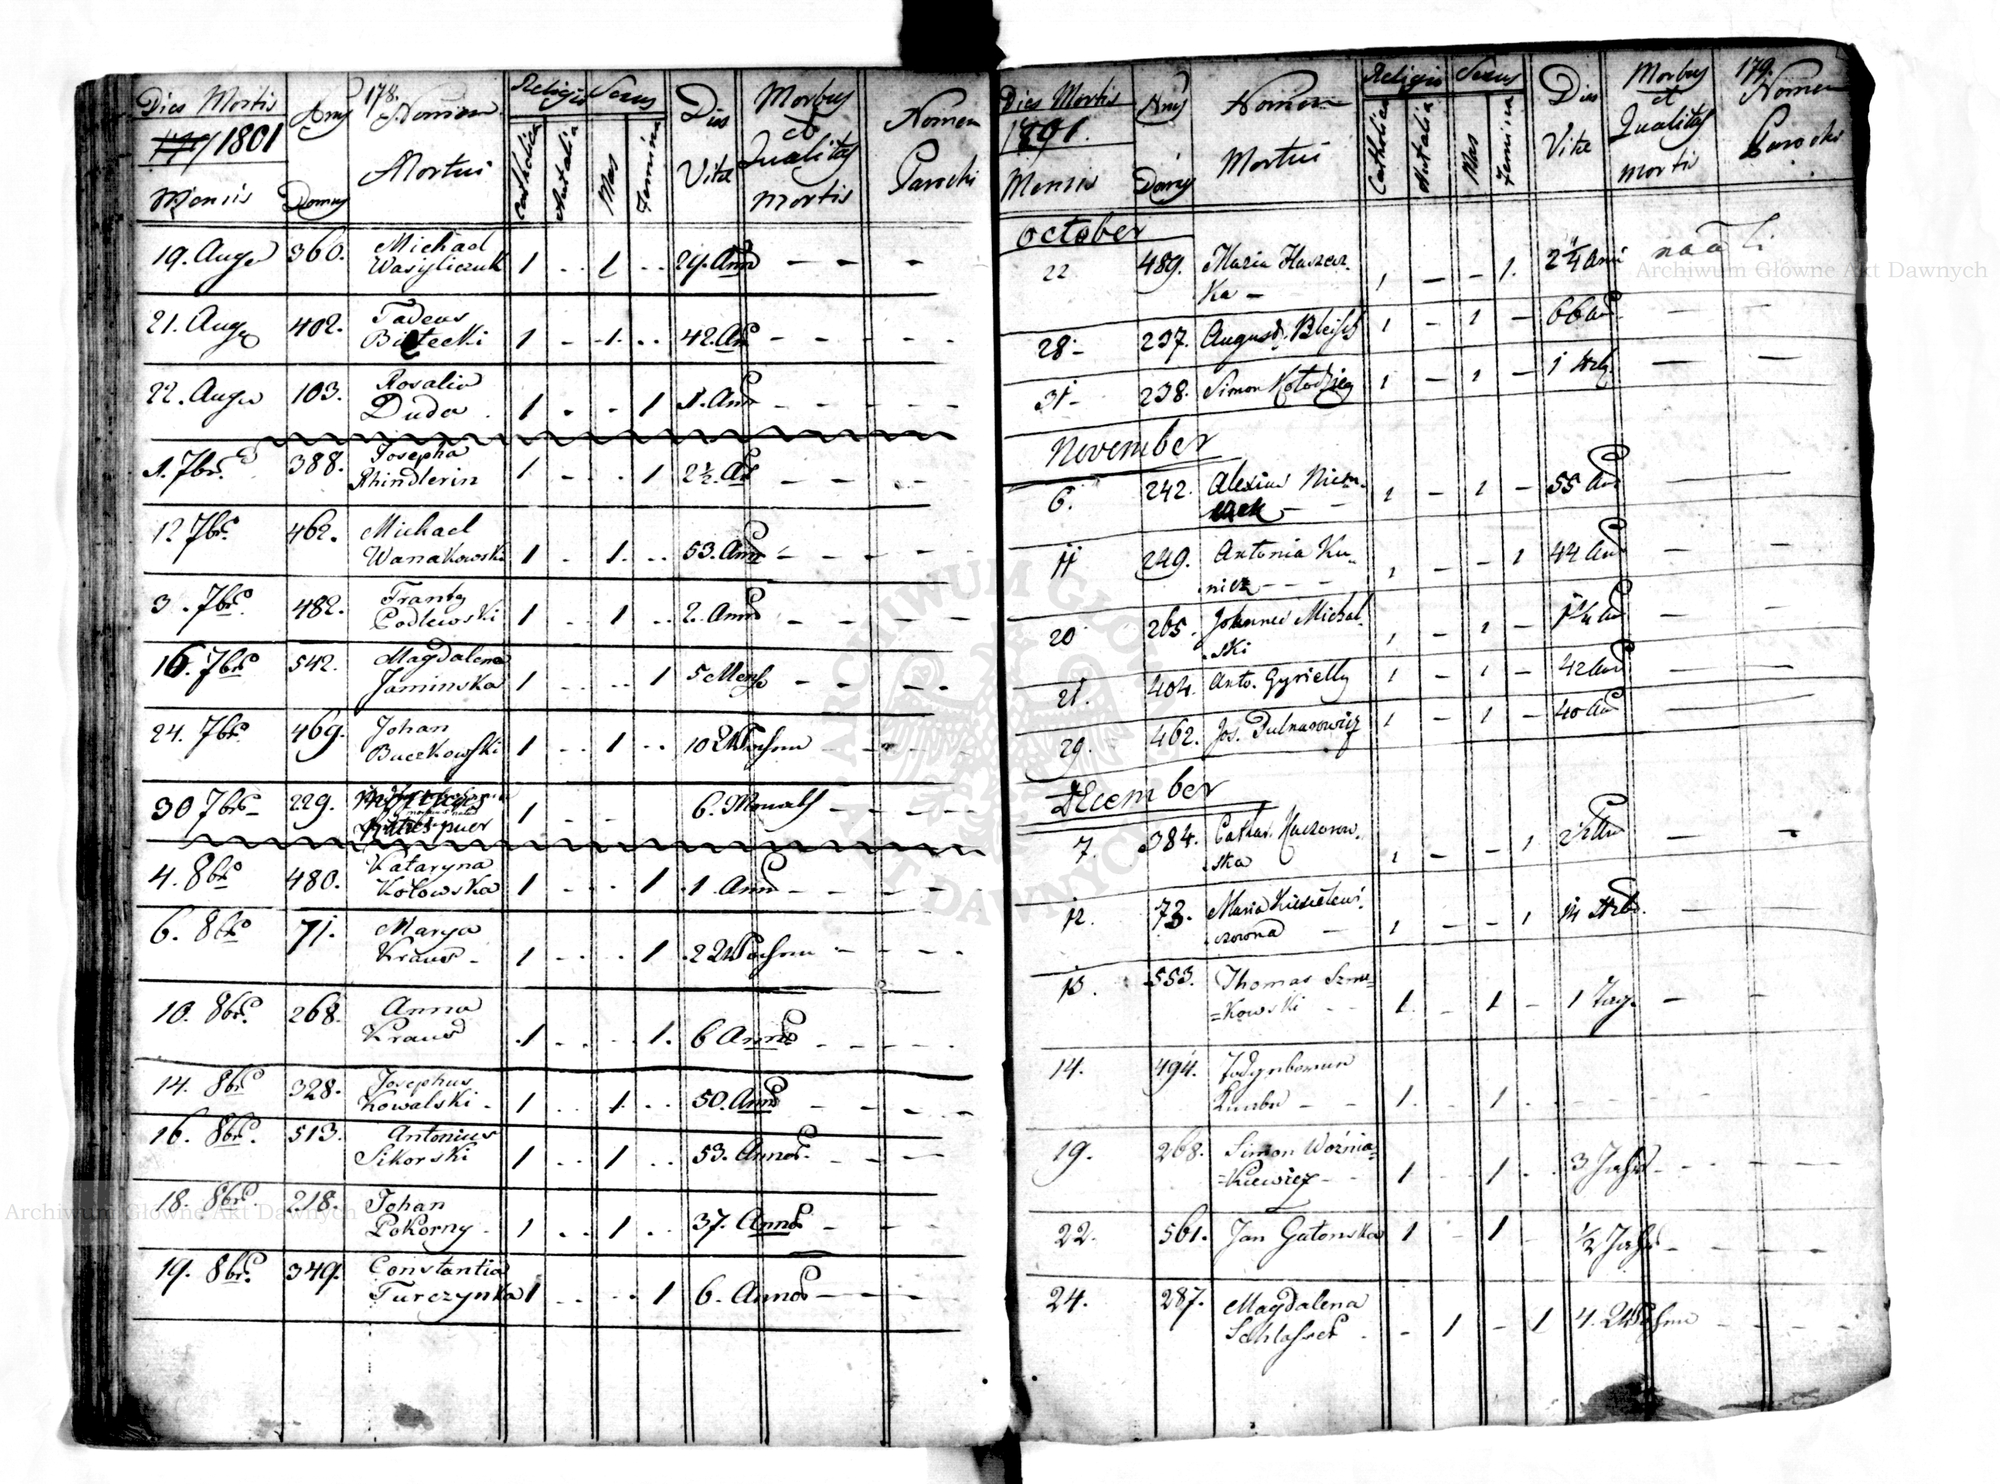 178.
Dies Mortis
1801
Mensis
Domus
Nomen
Mortui
Religio
Catholica
Autalia
Sexus
Mas
Femina
Dies
Vitæ
Morbus
et
Qualitas
mortis
Nomen
Parochi
19. Aug 360. Michael
Wasyliczuk 1 1 29. Ann
21. Aug 402. Tadeus
Bielecki 1 1 42. An
22. Aug 103. Rosalia
Duda 1 1 1. Ann
1. 7br. 388. Josepha
Khindlerin 1 1 2½. An
12 7br. 462. Michael
Wanakowski 1 1 53. Ann
3. 7br 482. Frantz
Podlewski 1 1 2. Ann
16. 7br 542. Magdalena
Jaminska 1 1 5 Mens
24. 7br. 469. Johan
Buczkowski 1 1 10 Wochen
30 7br 229.
puer 1 6. Monath
4. 8br 480. Kataryna
Kolowska 1 1 1. Ann
6. 8br 71. Marya
Kraus 1 1 2 Wochen
10. 8br. 268. Anna
Kraus 1 1. 6 Anno
14. 8br 328. Josephus
Kowalski 1 1 50. Ann
16. 8br. 513. Antonius
Sikorski 1 1 53. Annos
18. 8br. 218. Johan
Pokorny 1 1 37. Annos
19. 8br. 349. Constantia
Turczynka 1 1 6. Annos
179.
Dies Mortis
1801.
Mensis
Nrus
Domus
Nomen
Mortui
Religio
Catholica
Autalia
Sexus
Mas
Femina
Dies
Vitæ
Morbus
et
Qualitas
mortis
Nomen
Parochi
October
22 489. Maria Haszcz-
ka 1 1. 2¼ Ann
28 237. August. Bleisch 1 1 66 An
31 238. Simon Kołodziey 1 1
November
6. 242. Alexius Niem-
czek 1 1 55 An
11 249. Antonia Ku-
nicz 1 1 44 An
20 265. Johannes Michal-
ski 1 1
21. 404. Anto. Gyrielly 1 1 42 An
29. 462. Jos. Dulnarowicz 1 1 40 An
December
7. 384. Cathar. Kaczorow-
ska 1 1
12. 73. Maria
1 1 14
13. 553. Thomas Szma=
=kowski 1 1 1 Tag
14. 494.
1. 1.
19. 268. Simon Woźnia=
=kiewicz 1 1 3 Jahr
22. 561. Jan Gatonska 1 1 ½ Jahr
24. 287. Magdalena
Schlosser 1 1 4. Wochen
Archiwum Główne Akt Dawnych
Archiwum Główne Akt Dawnych
ARCHIWUM GŁÓWNE AKT DAWNYCH